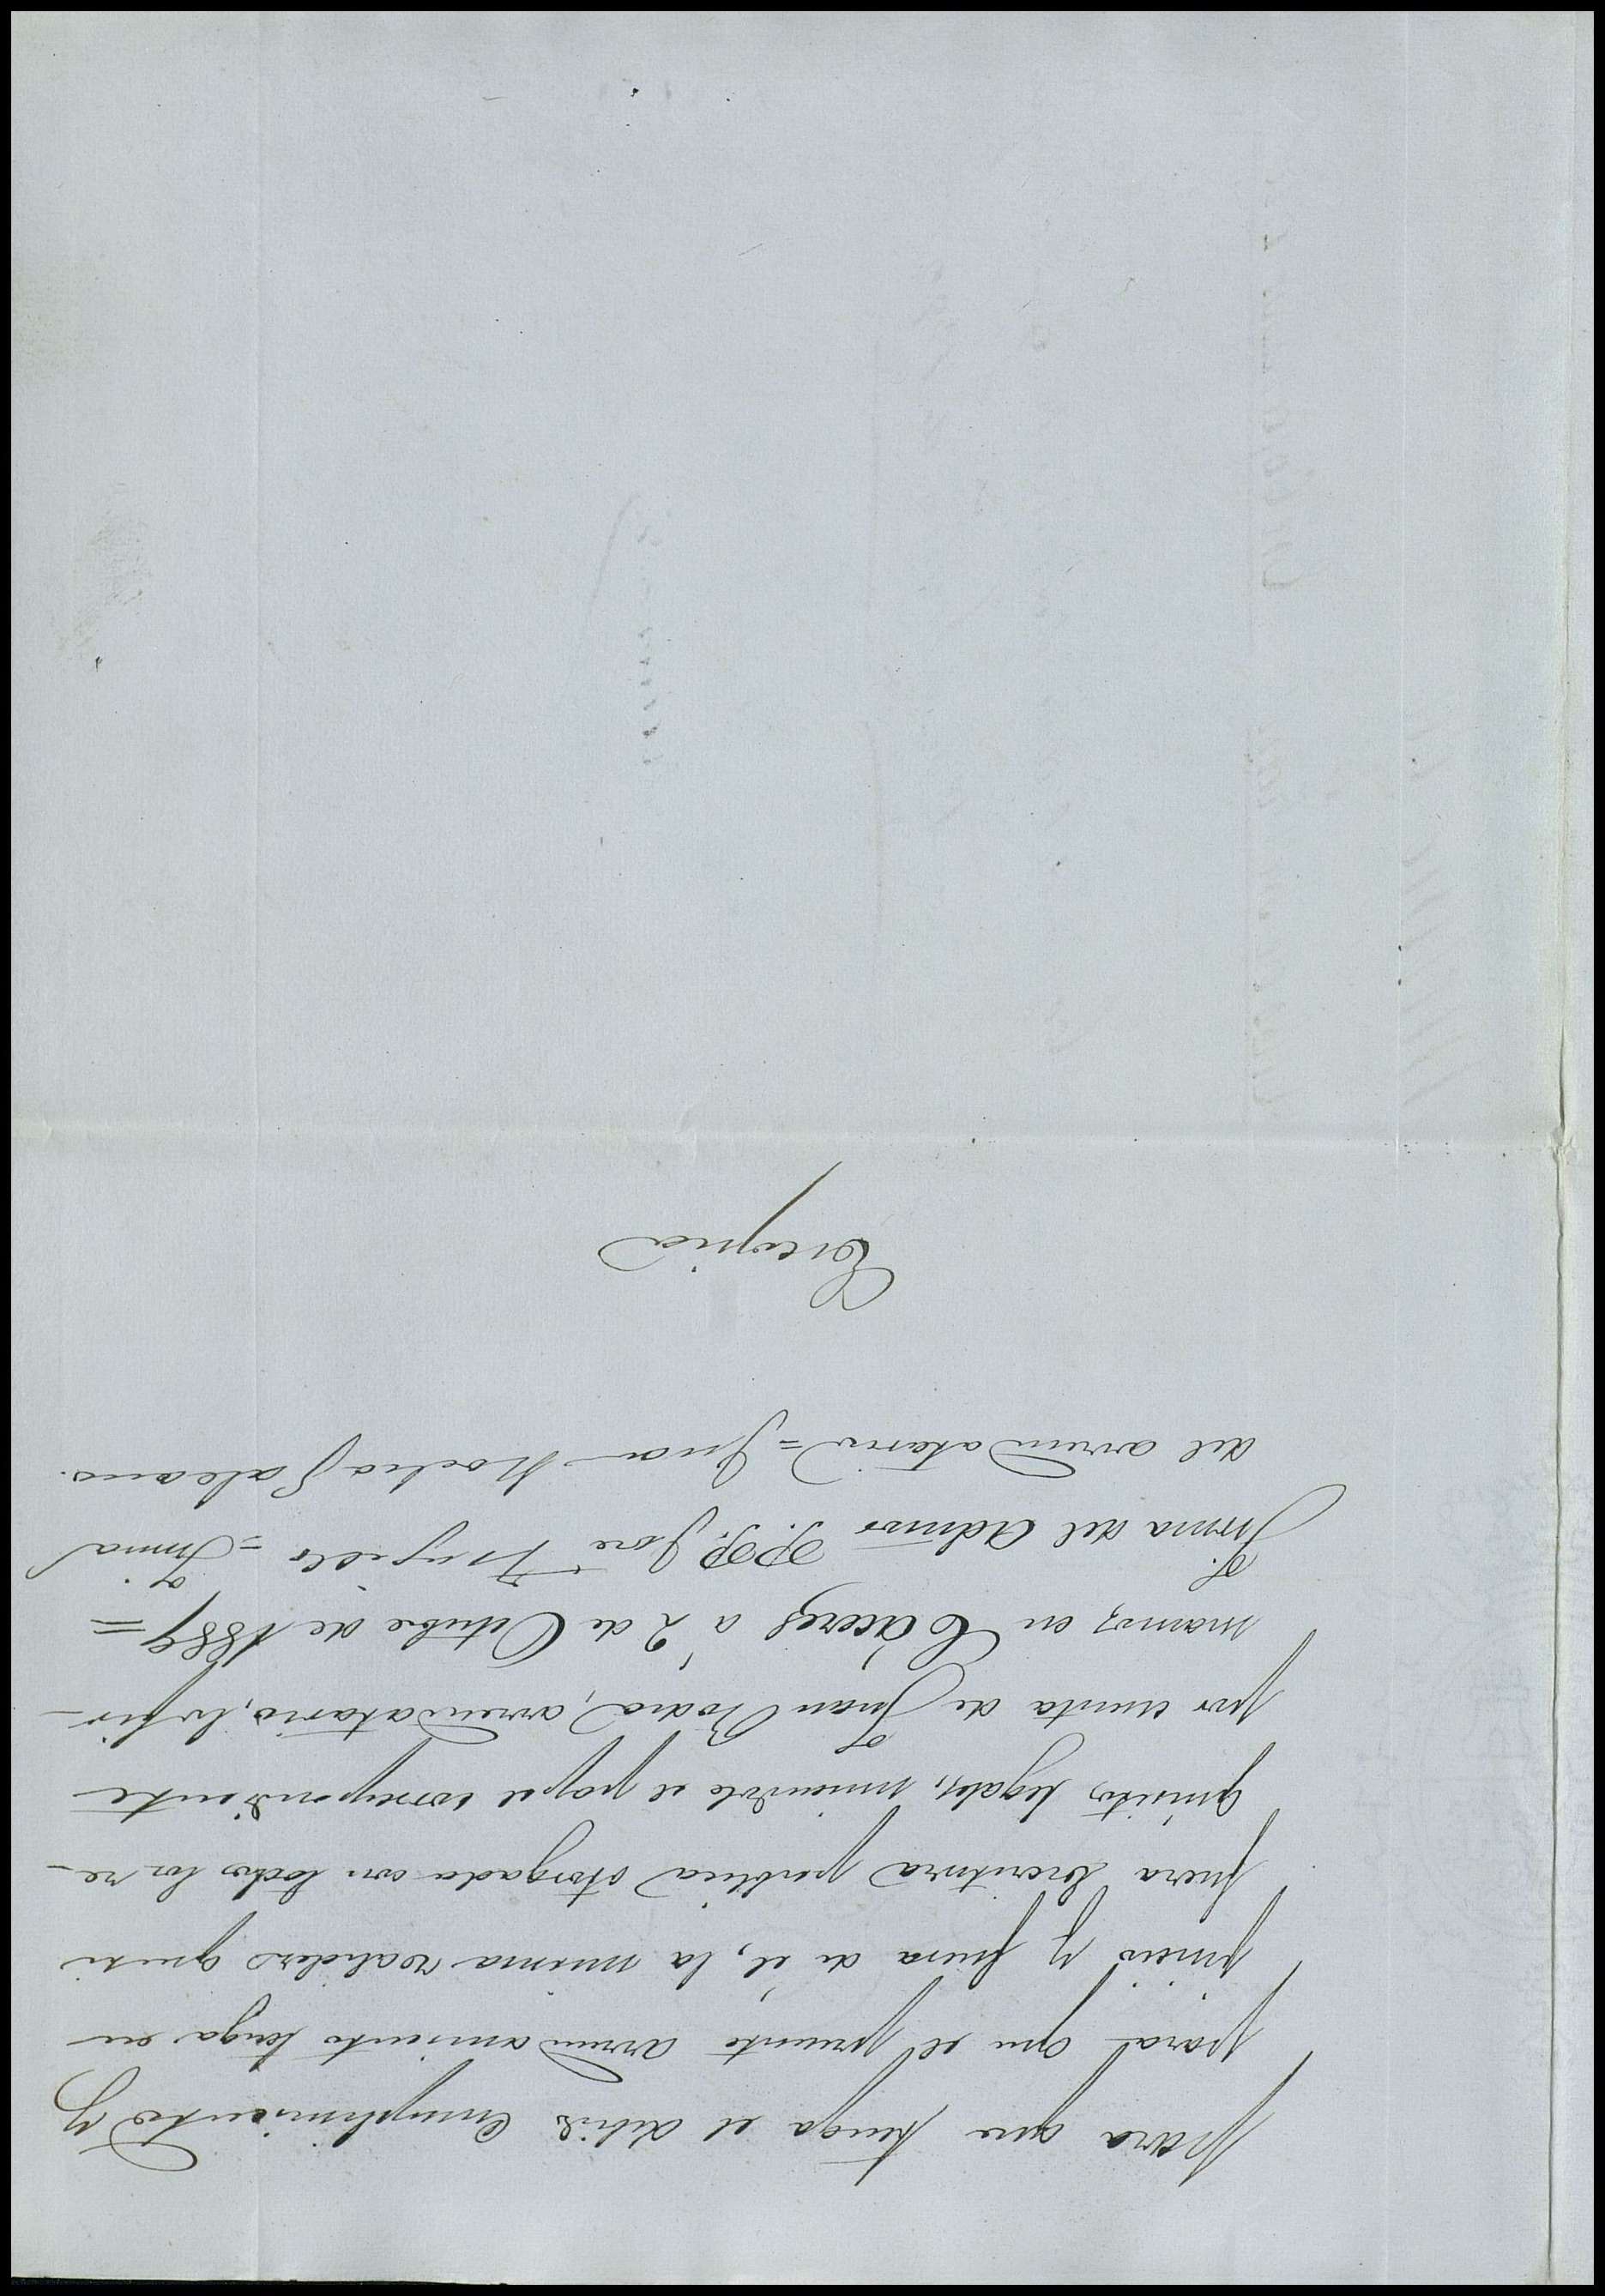 Para que tenga el debido cumplimiento y
para que el presente arrendamiento tenga en
juicio y fuera de él, la misma validez que si
fuera Escritura publica otorgada con todos los re-
quisitos legales, uniendole el papel correspondiente
por cuenta de Juan Rodia, arrendatario, lo fir-
mamos en Cáceres á 2 de Octubre de 1889=
Firma del Admor P.P. Jose = Firma
del arrendatario = Juan Galeano.
Es copia